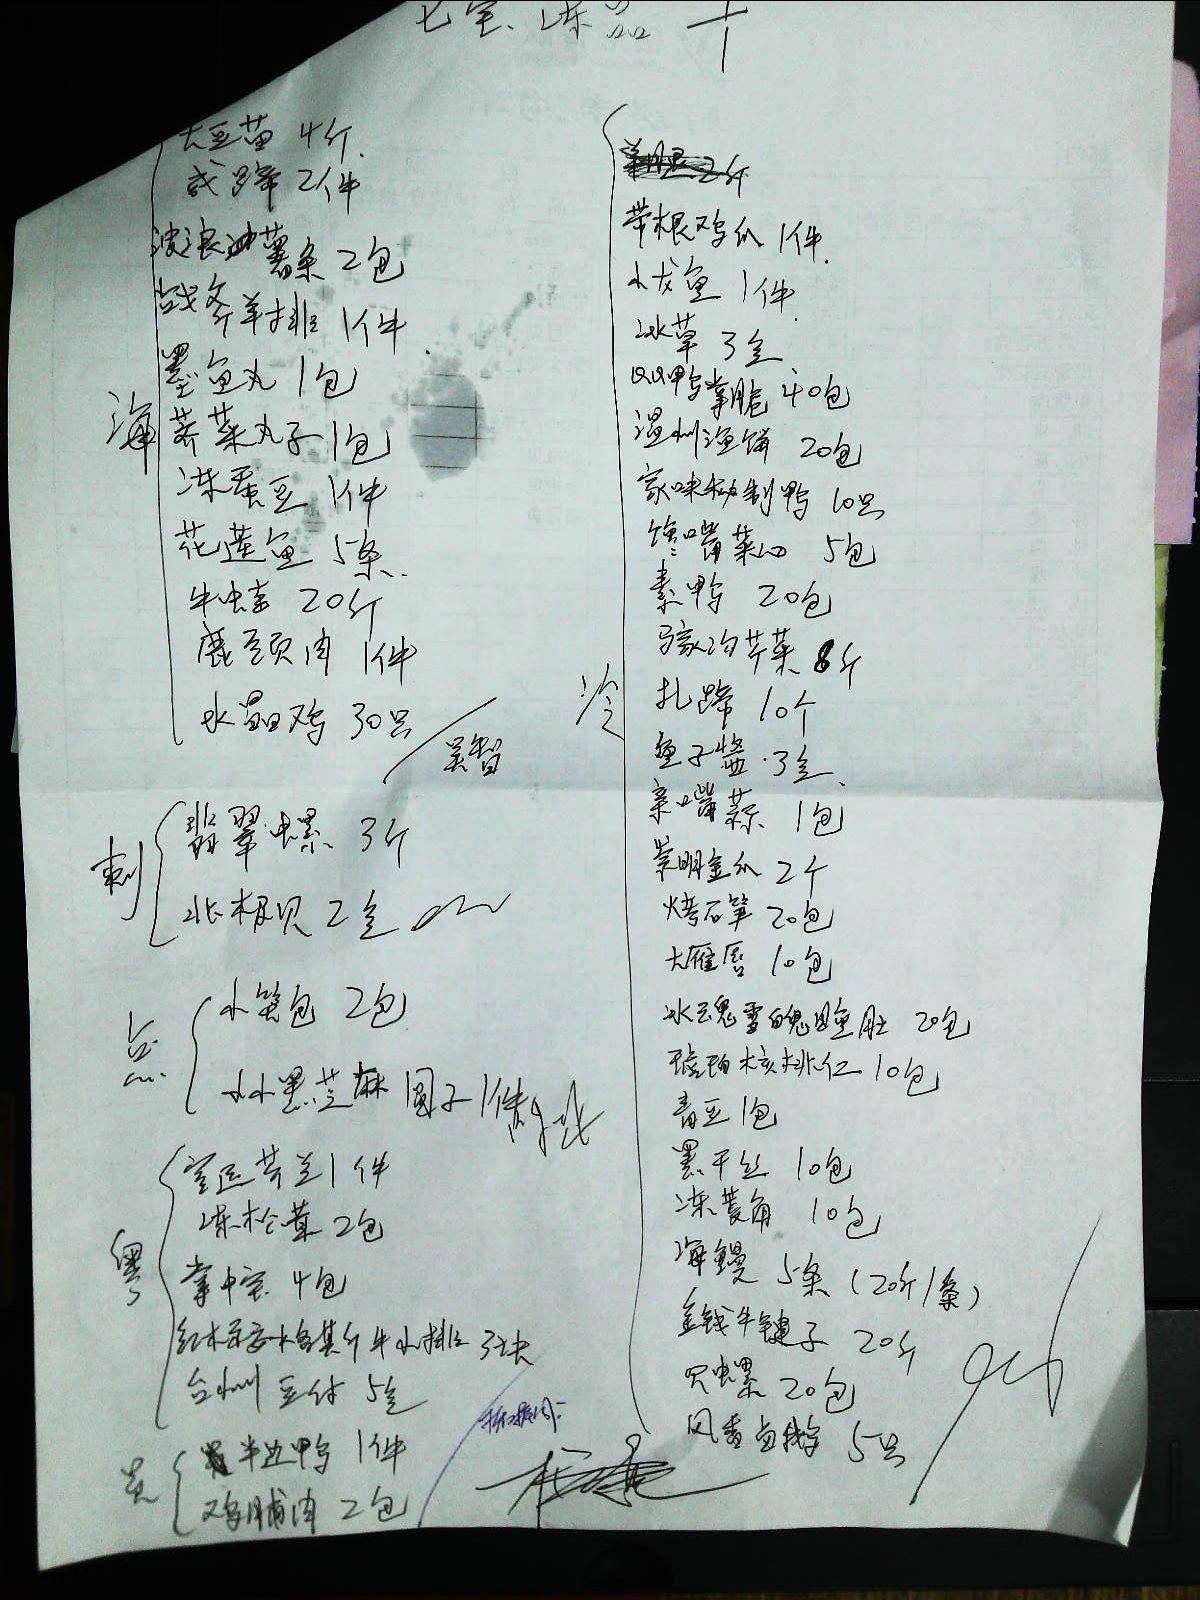 七宝 冻品
大豆苗 4斤
波浪薯条 2包
战斧羊排 1件
墨鱼丸 1包
海
荠菜丸子 1包
冻蚕豆 1件
花莲鱼 5条
牛蛙 20斤
鹿颈肉 1件
水晶鸡 30只
吴智
刺
翡翠螺 3斤
北极贝 2盒
点
小笼包 2包
黑芝麻圆子 1件
粤
芥兰 1件
冻松茸 2包
掌中宝 4包
牛小排 3块
台州豆付 5盒
半边鸭 1件
鸡脯肉 2包
冷
带根鸡爪 1件
小龙鱼 1件
冰草 3盒
QQ鸭掌脆 40包
温州渔饼 20包
家味秘制鸭 10只
馋嘴菜心 5包
素鸭 20包
芹菜 8斤
扎蹄 10个
鱼子酱 3盒
亲嘴蒜 1包
崇明金瓜 2个
烤石笋 20包
大雁唇 10包
20包
琥珀核桃仁 10包
青豆 1包
黑干丝 10包
冻菱角 10包
海鳗 5条 (20斤/条)
金钱牛键子 20斤
贝螺 20包
风香 5只